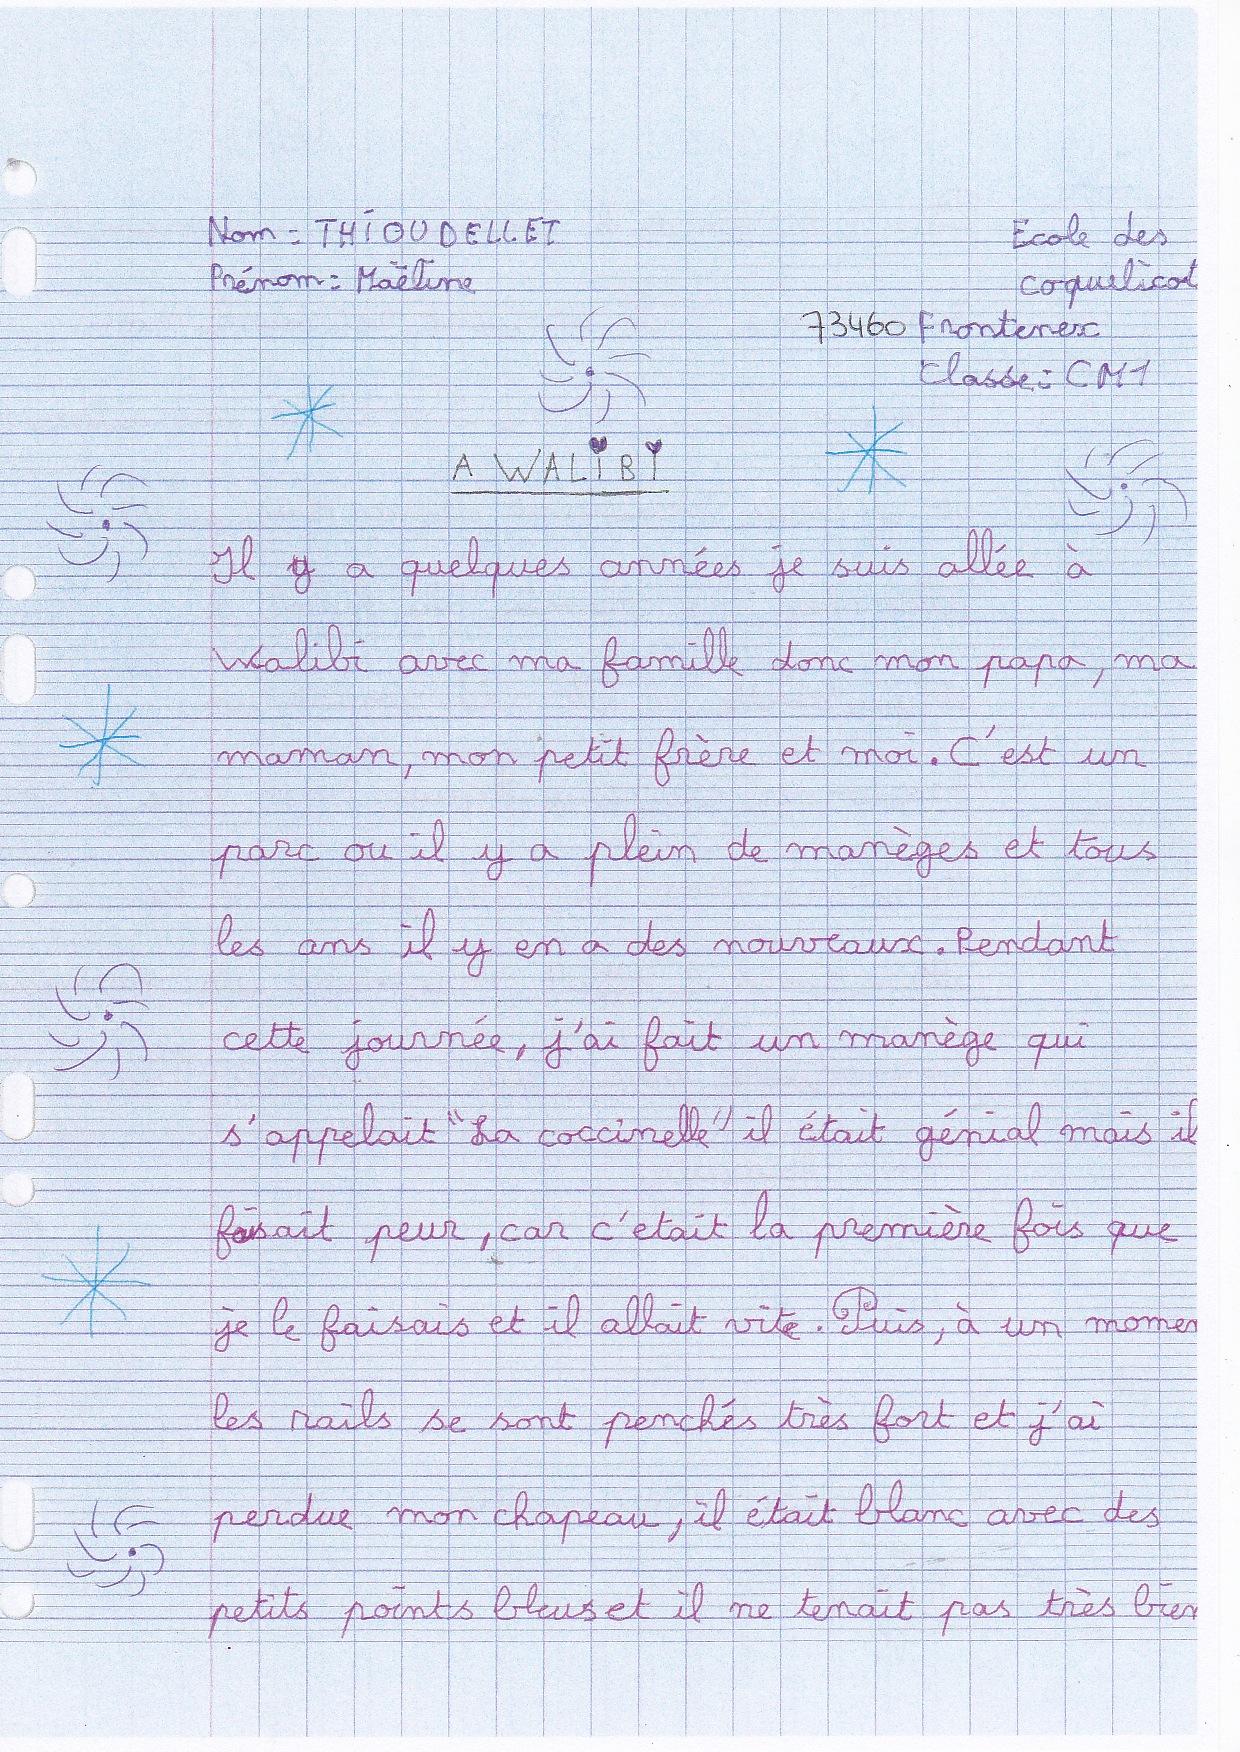 Nom = THIOUDELLET
Ecole des
Prénom = Maëline
coquelicot
73460 Frontenex
Classe : CM1
A WALiBi
Il y a quelques années je suis allée à
Walibi avec ma famille donc mon papa, ma
maman, mon petit frère et moi. C'est un
parc ou il y a plein de manèges et tous
les ans il y en a des nouveaux. Pendant
cette journée, j'ai fait un manège qui
s'appelait "La coccinelle" il était génial mais il
faisait peur, car c'etait la première fois que
je le faisais et il allait vite. Puis, à un momen
les rails se sont penchés très fort et j'ai
perdue mon chapeau, il était blanc avec des
petits points bleus et il ne tenait pas très bien